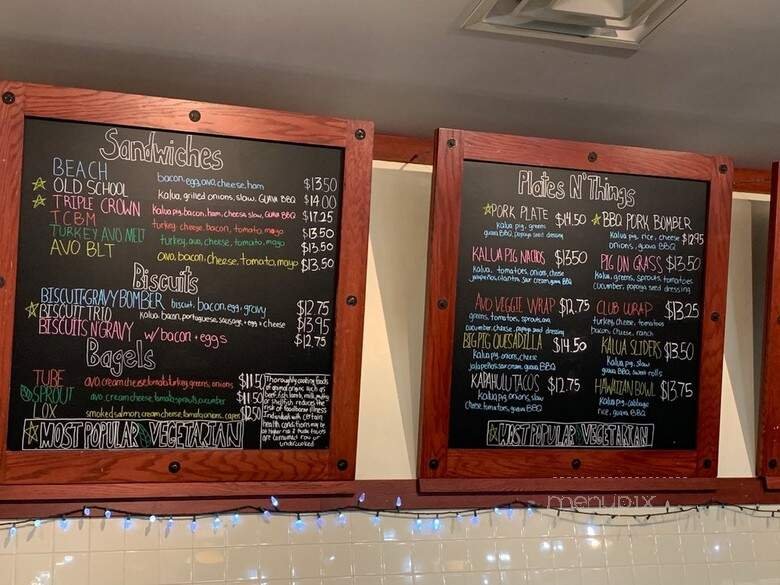 Sandwiches
BEACH bacon, egg, avo, cheese, ham $13.50
OLD SCHOOL Kalua, grilled onions, slaw, GUAVA BBQ $14.00
TRIPLE CROWN Kalua pig, bacon, ham, cheese, slaw, GUAVA BBQ $17.25
TCBM turkey, cheese, bacon, tomato, mayo $13.50
TURKEY AVO MELT turkey, avo, cheese, tomato, mayo $13.50
AVO BLT avo, bacon, cheese, tomato, mayo $13.50
Biscuits
BISCUIT+GRAVY BOMBER biscuit, bacon, egg, gravy $12.75
BISCUIT TRIO kalua, bacon, portuguese sausage, egg + cheese $13.95
BISCUITS N GRAVY w/ bacon + eggs $12.75
Bagels
TUBE avo, cream cheese, tomato, turkey, greens, onions $11.50
SPROUT avo, cream cheese, tomato, sprouts, cucumber $11.50
LOX smoked salmon, cream cheese, tomato, onions, capers $12.50
Thoroughly cooking foods
of animal origin such as
beef, fish, lamb, milk, poultry
or shellfish reduces the
risk of foodborne illness
Individuals with certain
health conditions may be
at higher risk if these foods
are consumed raw or
undercooked
MOST POPULAR VEGETARIAN
Plates N' Things
PORK PLATE $14.50
kalua pig, greens
guava BBQ, papaya seed dressing
BBQ PORK BOMBER
kalua pig, rice, cheese $12.95
onions, guava BBQ
KALUA PIG NACHOS $13.50
kalua, tomatoes, onions, cheese
jalapeños, cilantro, sour cream, guava BBQ
PIG ON GRASS $13.50
kalua, greens, sprouts, tomatoes
cucumber, papaya seed dressing
AVO VEGGIE WRAP $12.75
greens, tomatoes, sprouts, avo
cucumber, cheese, papaya seed dressing
CLUB WRAP $13.25
turkey, cheese, tomatoes
bacon, cheese, ranch
BIG PIG QUESADILLA $14.50
kalua pig, onions, cheese
jalapeños, sour cream, guava BBQ
KALUA SLIDERS $13.50
kalua pig, slaw
guava BBQ, sweet rolls
KAPAHULU TACOS $12.75
kalua pig, onions, slaw
cheese, tomatoes, guava BBQ
HAWAIIAN BOWL $13.75
kalua pig, cabbage
rice, guava BBQ
MOST POPULAR VEGETARIAN
menupix